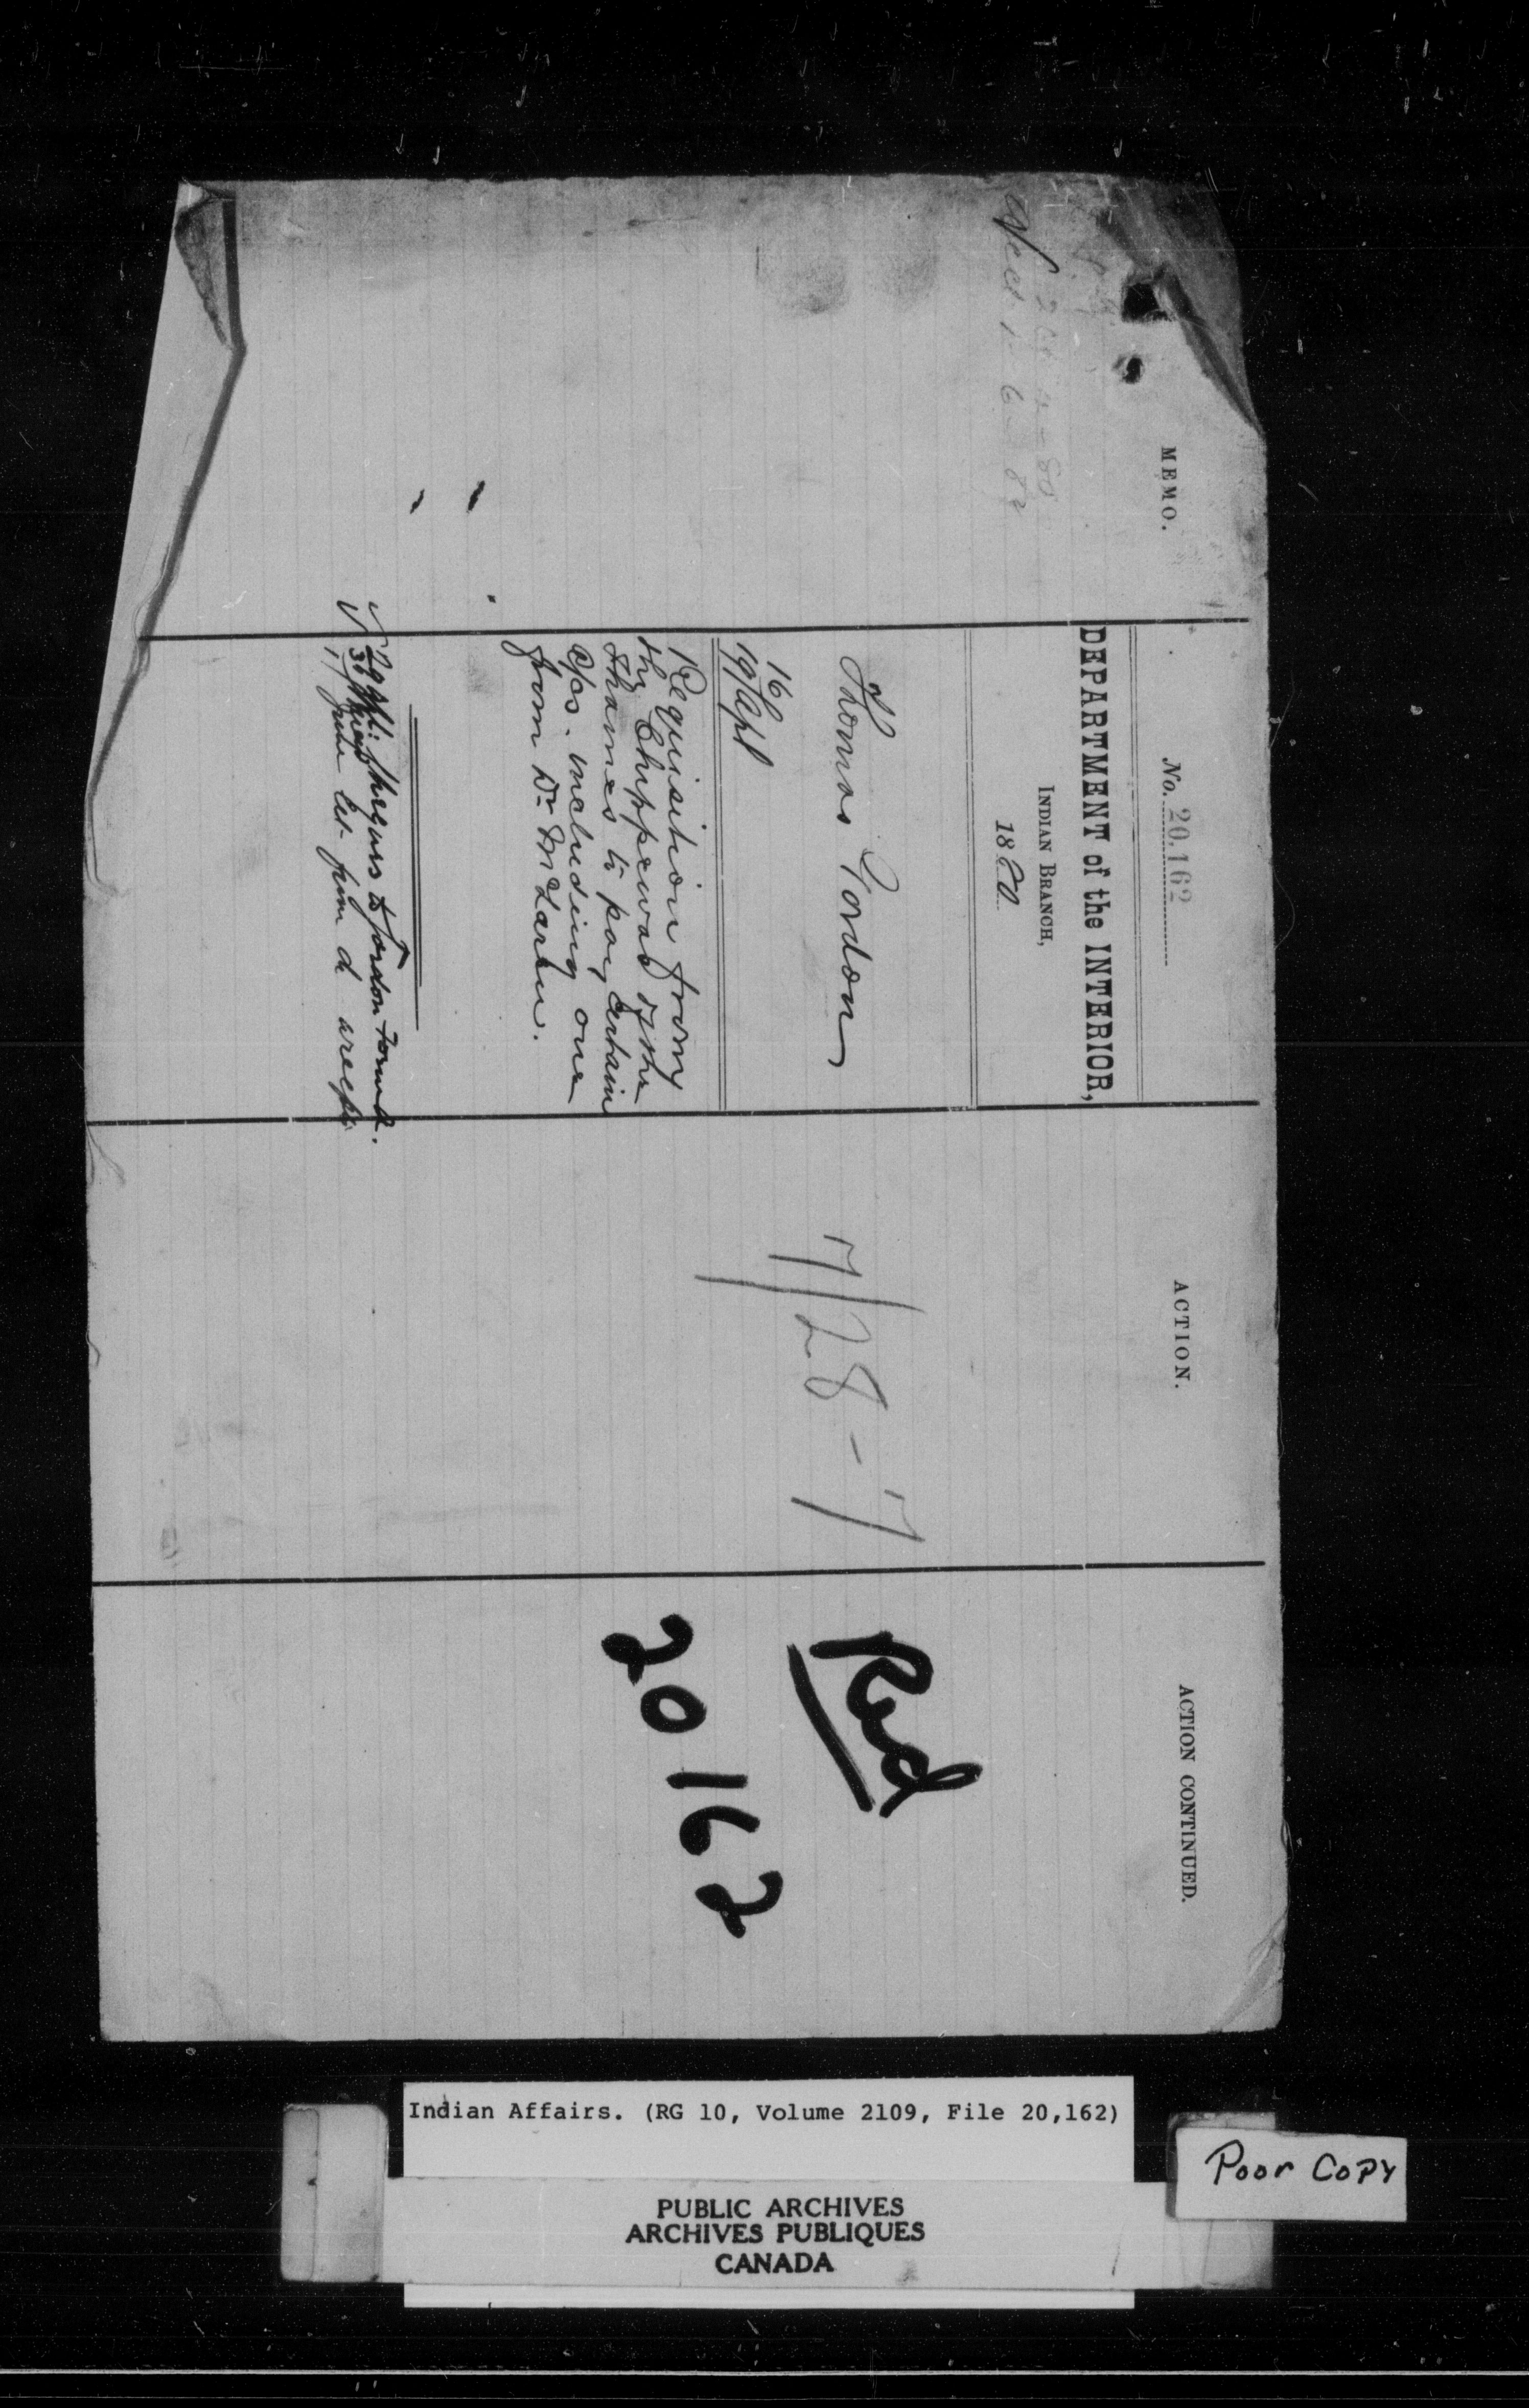 MEMO.
No. 20,162
DEPARTMENT of the INTERIOR,
INDIAN BRANCH,
1880
Thomas Gordon
16
19 Apl
Requisition from
the Chippewas of the
Thames to pay certain
a/cs. including one
from Dr McLaren.
Cheques to Gordon
17 June Let from do
ACTION.
7/28-7
ACTION CONTINUED.
Red
20162
Indian Affairs. (RG 10, Volume 2109, File 20,162)
Poor Copy
PUBLIC ARCHIVES
ARCHIVES PUBLIQUES
CANADA